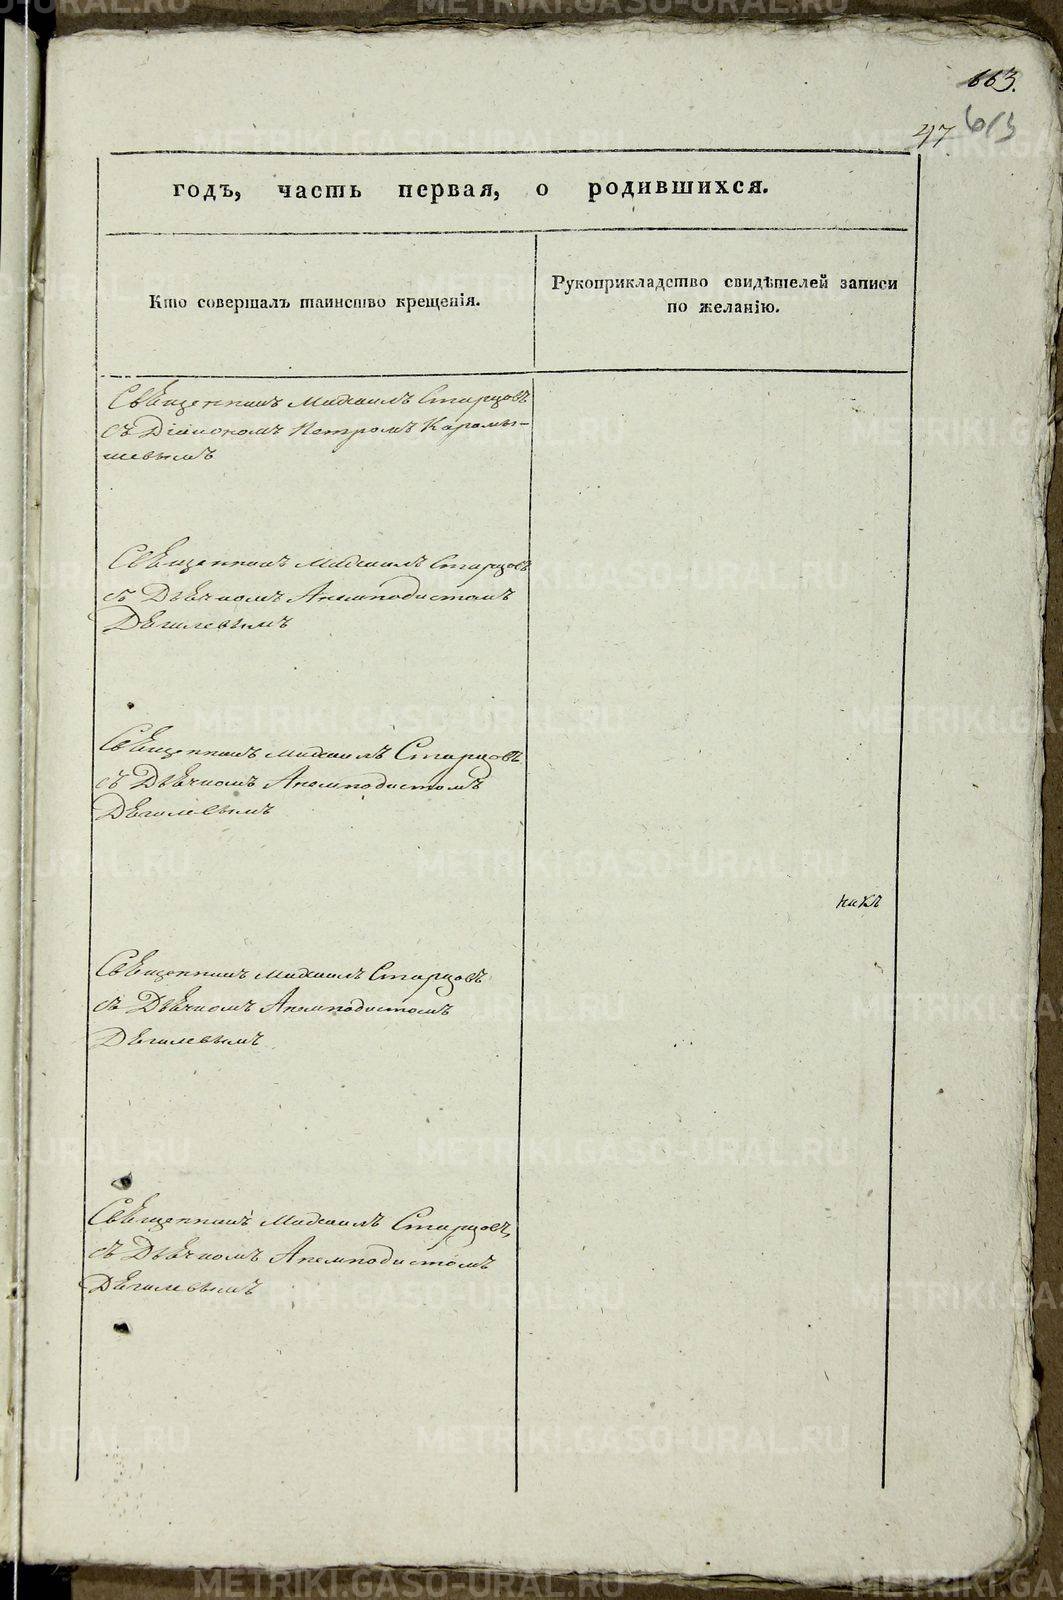 663.
47 613
годъ, часть первая, о родившихся.
Кто совершалъ таинство крещенія.
Рукоприкладство свидѣтелей записи
по желанію.
Священникъ Михаилъ Старцовъ
съ Діакономъ Петромъ Карамы-
шевымъ
Священникъ Михаилъ Старцовъ
съ Дьячкомъ Анемподистомъ
Дягилевымъ
Священникъ Михаилъ Старцовъ
съ Дьячкомъ Анемподистомъ
Дягилевымъ
Священникъ Михаилъ Старцовъ
съ Дьячкомъ Анемподистомъ
Дягилевымъ
Священникъ Михаилъ Старцовъ
съ Дьячкомъ Анемподистомъ
Дягилевымъ
METRIKI.GASO-URAL.RU